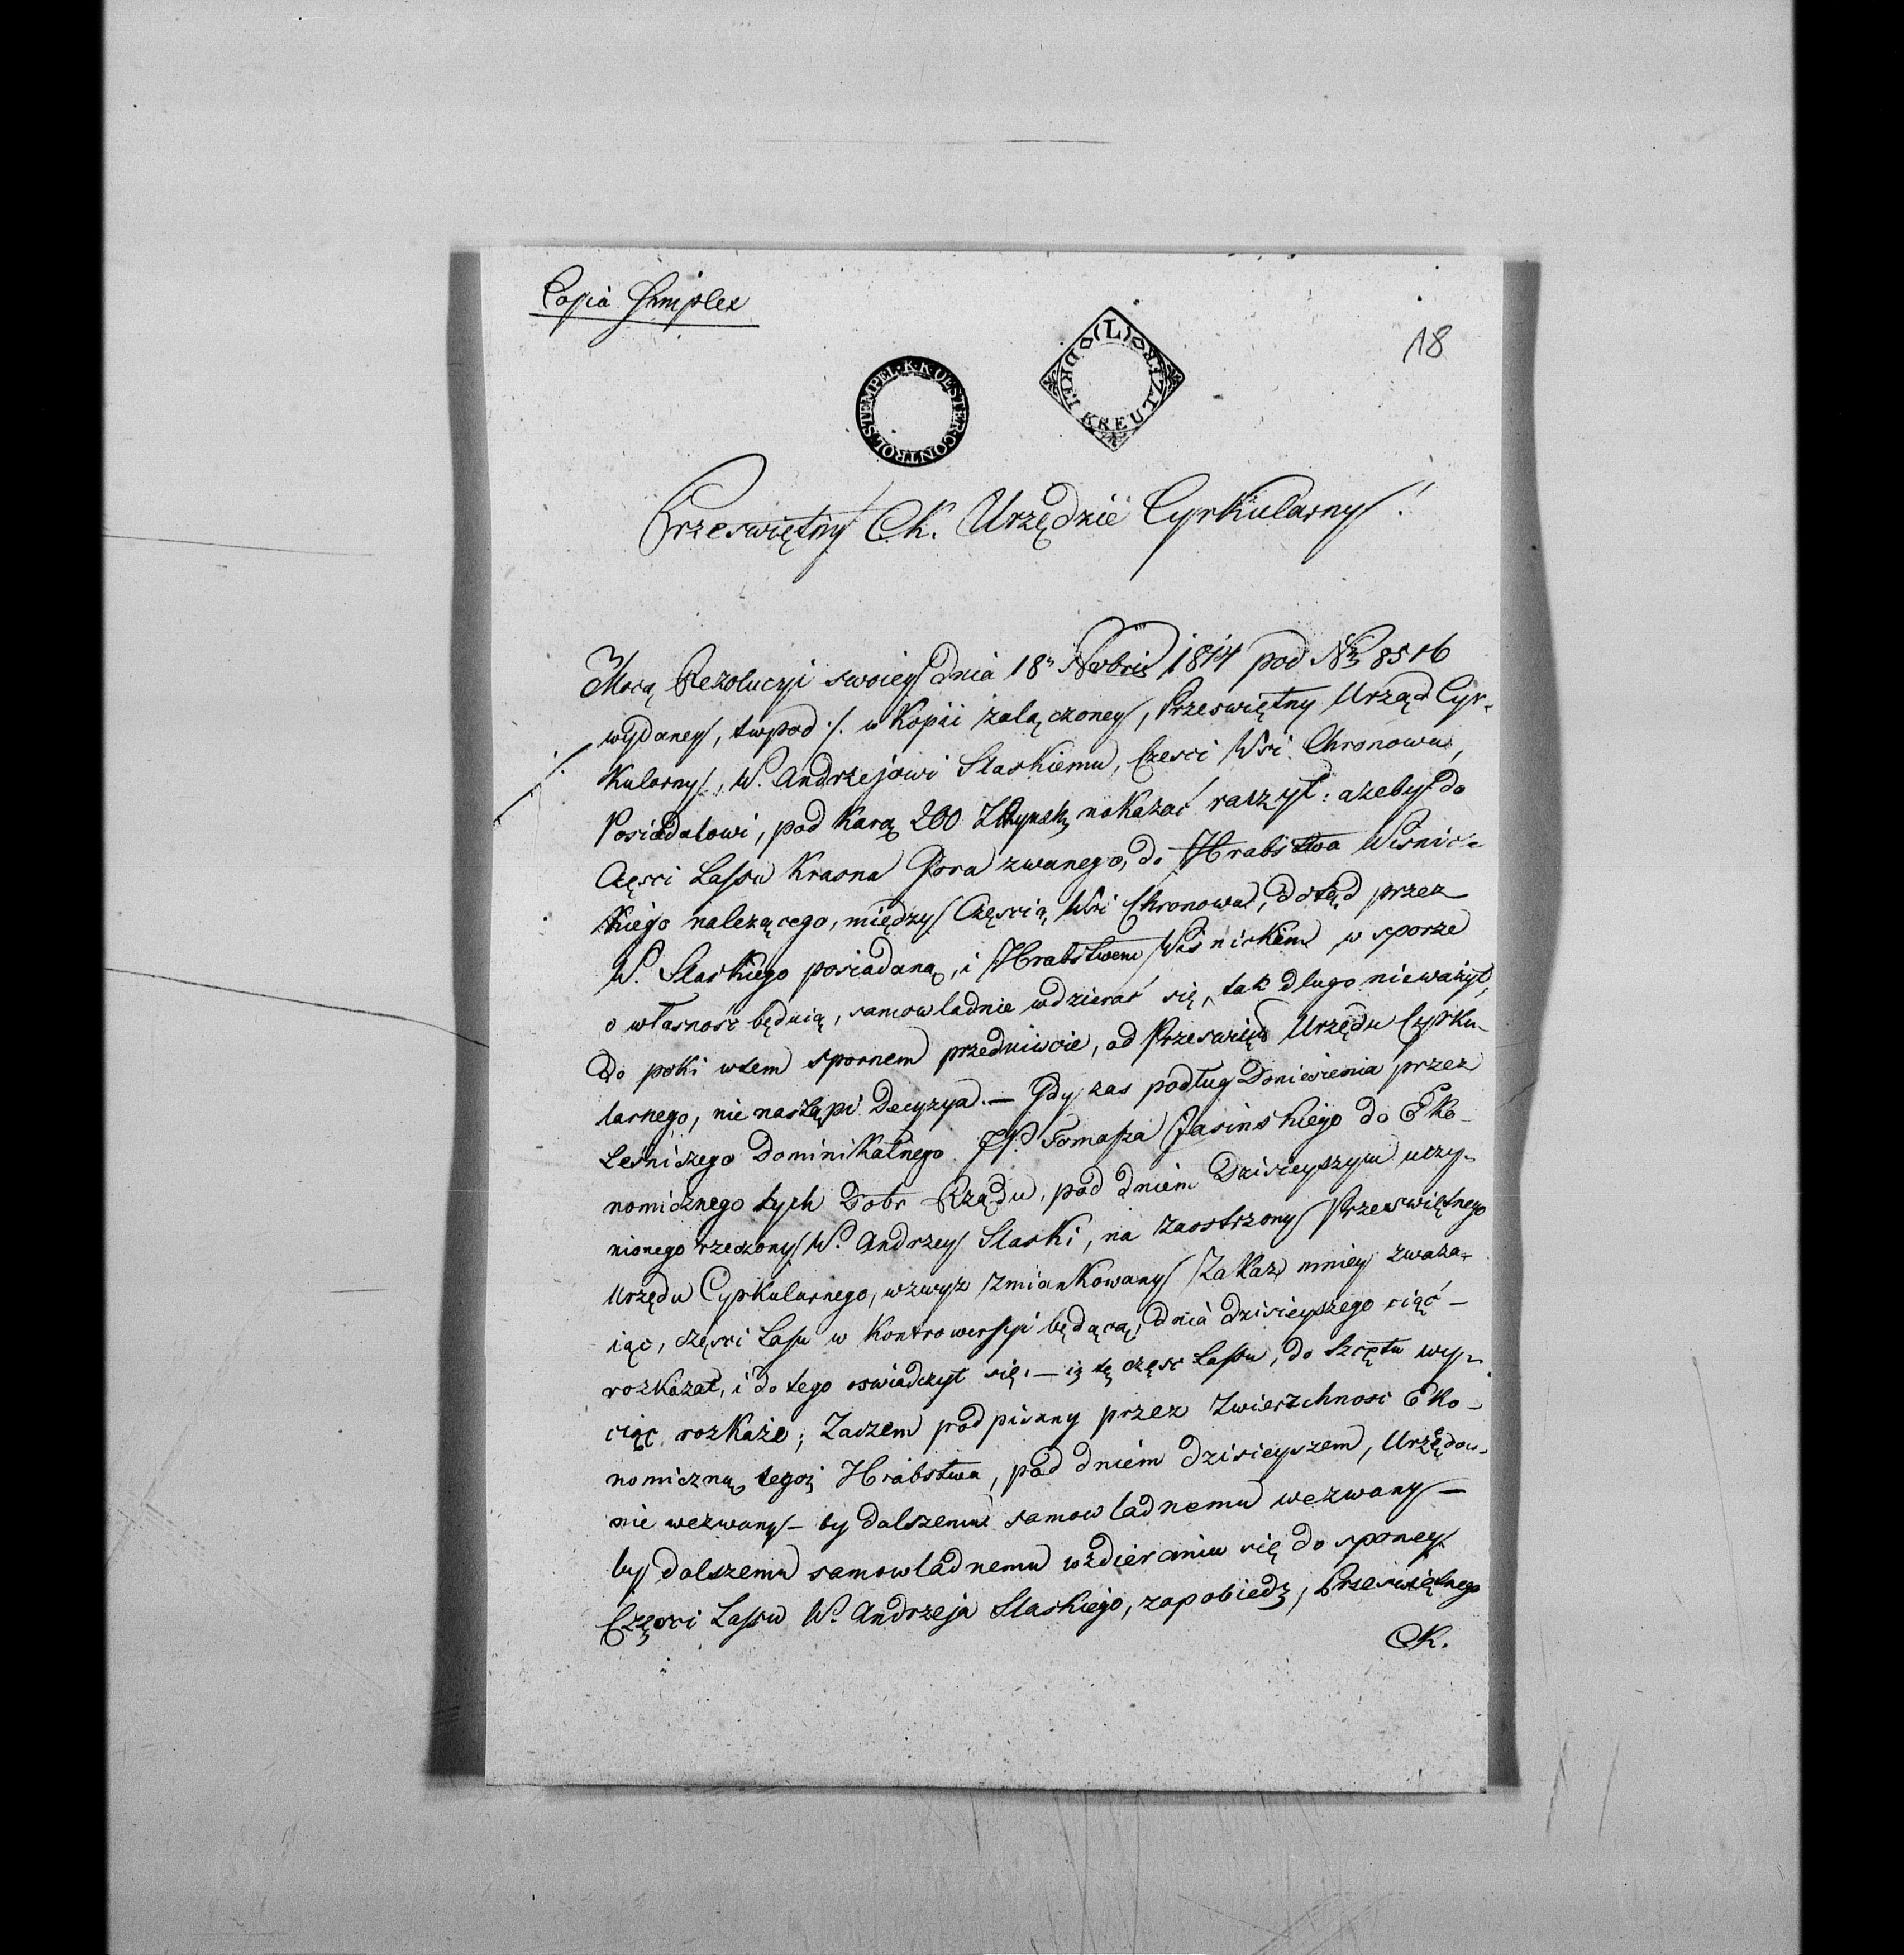 Copia Simplex
18
STEMPEL · K · K · OESTER · CONTROL ·
(L) DREI KREUTZER
Przeswiętny CK. Urzędzie Cyrkularny!
Mocą Rezolucyi swoiey dnia 18 Novbris 1814 pod Nrm 8516
wydaney, tu pod ./. w Kopii załączoney, Przeswiętny Urząd Cyr-
kularny, W. Andrzejowi Slaskiemu, Czesci Wsi Chronowa,
Posiadałowi, pod karą 200 nakazać raczył: ażeby do
Częsci Lassu Krasna Gora zwanego, do Hrabstwa Wisnic-
kiego należącego, między Częscią Wsi Chronowa, dotąd przez
W. Slaskiego posiadaną, i Hrabstwem Wisnickiem w sporze
o własnosc będącą, samowladnie wdzierać się, tak długo nieważył,
do poki wtem spornem przedmiocie, od Przeswięt Urzędu Cyrku-
larnego, nie nastąpi Decyzya. — Gdy zas podług Doniesienia przez
Lesniczego Dominikalnego JP. Tomassa Jasinskiego do Eko-
nomicznego tych Dobr Rządu, pod dniem Dzisieyszym uczy-
nionego rzeczony W. Andrzey Slaski, na zaostrzony Przeswiętnego
Urzędu Cyrkularnego, wzwyz zmiankowany Zakaz mniey zwaza-
iąc, częsci Lasu w Kontrowersyi będącą, dnia dzisieyszego ciąć —
rozkazał, i do tego oswiadczył się, — iż tę częsc Lassu, do szczętu wy-
ciąc rozkaże; Zaczem podpisany przez Zwierzchnosc Eko-
nomiczną tegoż Hrabstwa, pod dniem dzisieyszem, Urzędow-
nie wezwany — by dalszemu samowladnemu wezwany —
by dalszemu samowladnemu wdzieraniu się do sporney
Częsci Lassu W. Andrzeja Slaskiego, zapobiedz, Przeswiętnego
CK.